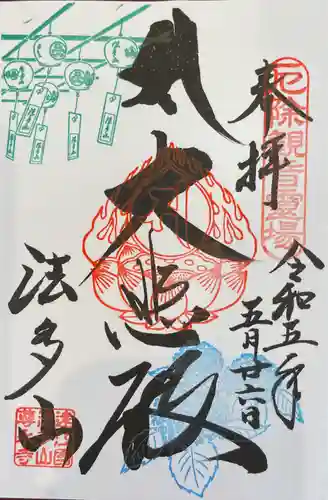 奉拝
厄除観音霊場
令和五年
五月廿六日
大悲殿
法多山